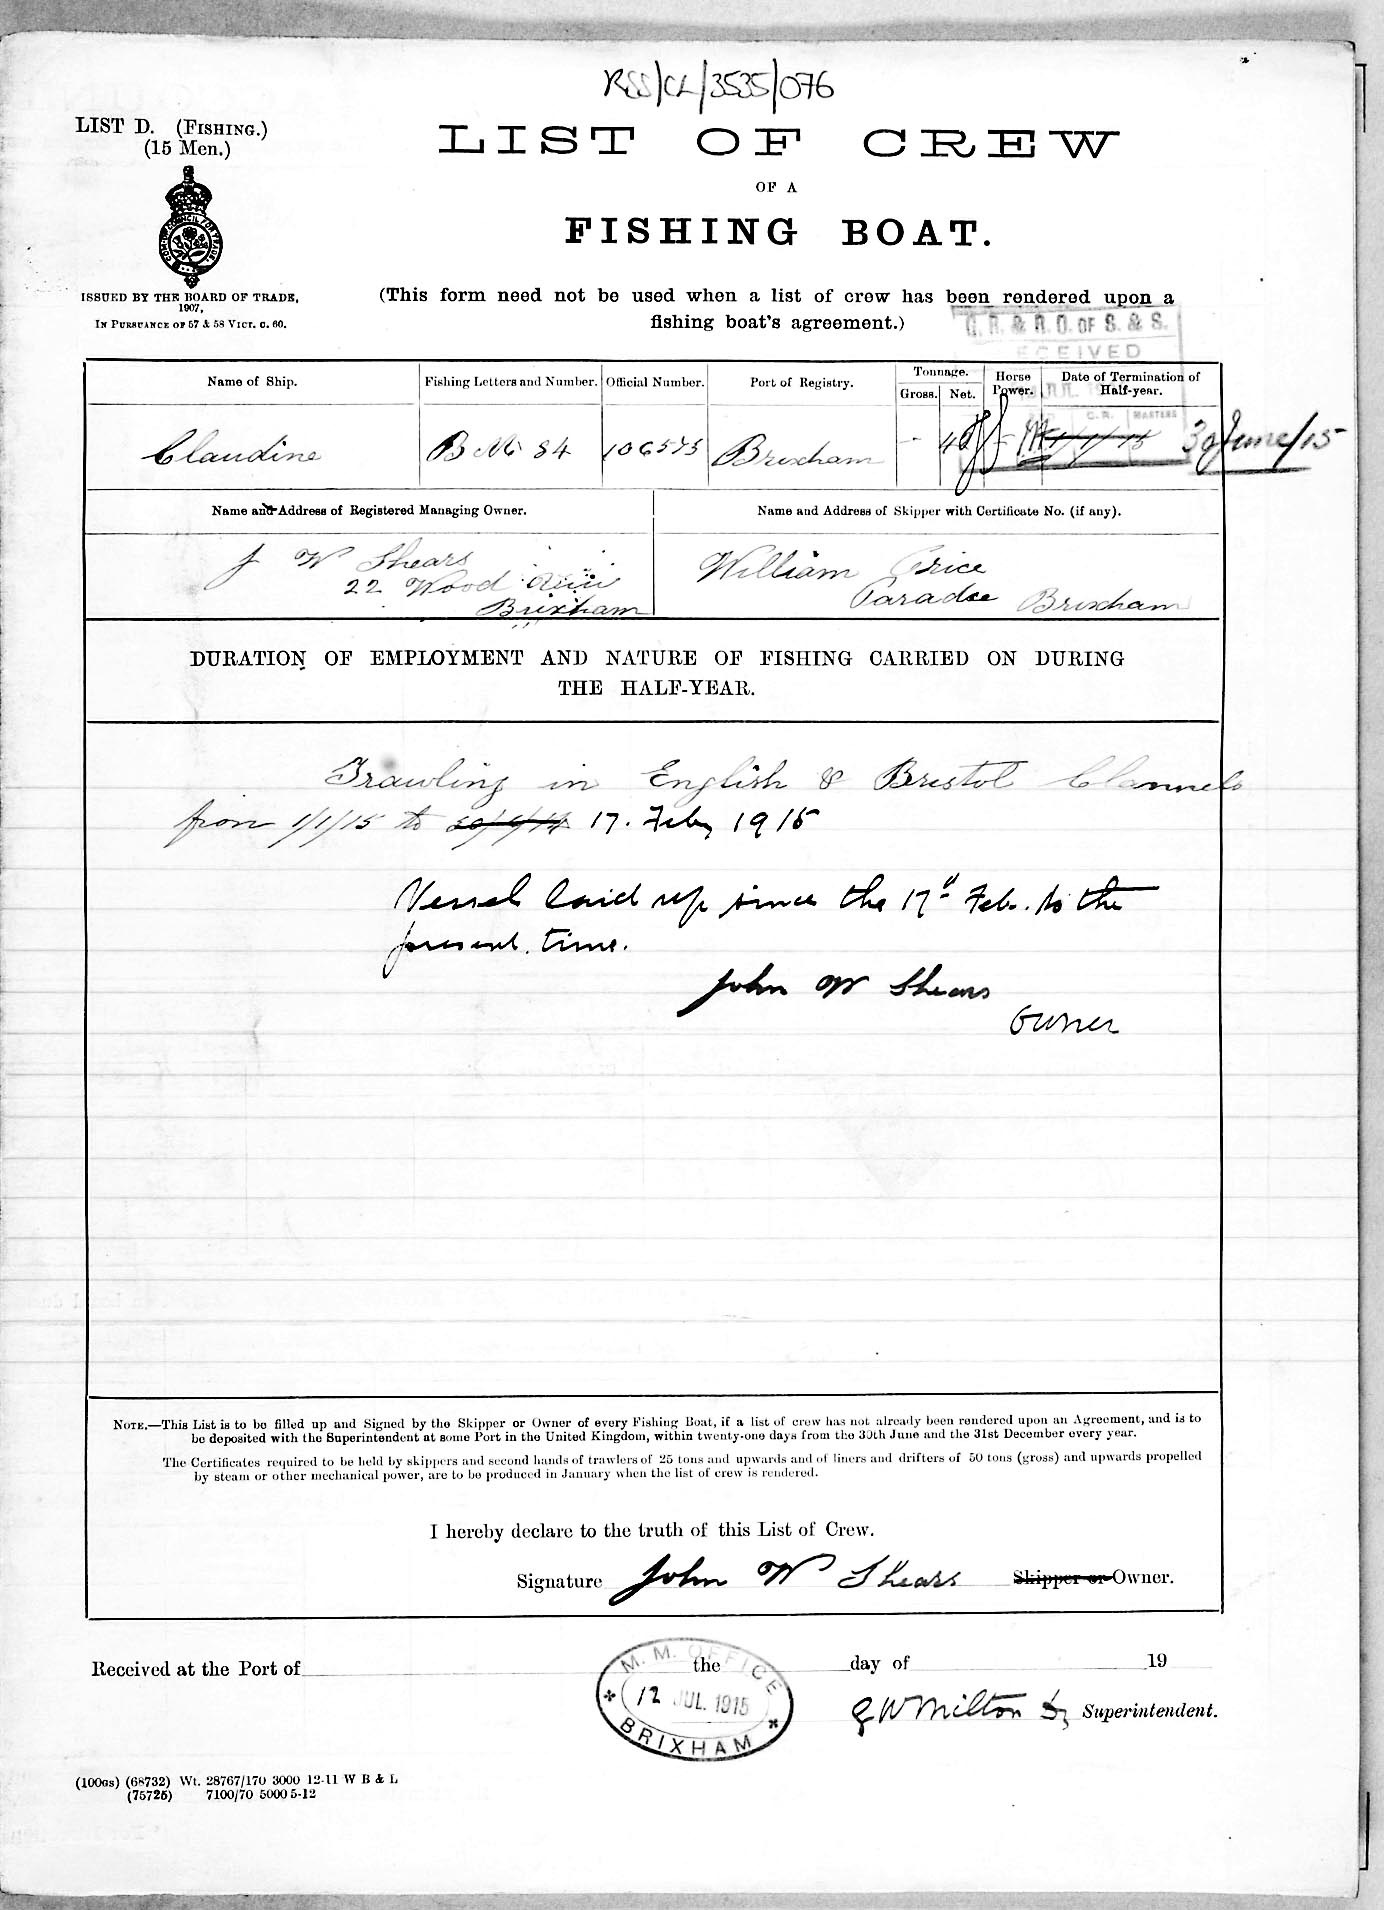 RSS/CL/3535/076
LIST D. (FISHING.)
(15 Men.)
LIST OF CREW
OF A
FISHING BOAT.
ISSUED BY THE BOARD OF TRADE,
1907,
IN PURSUANCE OF 57 & 58 VICT. C. 60.
(This form need not be used when a list of crew has been rendered upon a
fishing boat's agreement.)
G. R. & R. O. OF S. & S.
RECEIVED
JUL 19
C.R. MASTERS
Name of Ship. Fishing Letters and Number. Official Number. Port of Registry. Tonnage. Gross. Net. Horse Power. Date of Termination of Half-year.
Claudine BM 84 106575 Brixham - 40 - 1/1/15 30 June/15
Name and Address of Registered Managing Owner. Name and Address of Skipper with Certificate No. (if any).
J W Shears
22 Wood
Brixham
William Price
Paradse Brixham
DURATION OF EMPLOYMENT AND NATURE OF FISHING CARRIED ON DURING
THE HALF-YEAR.
Trawling in English & Bristol Channels
from 1/1/15 to 30/6/14 17. Feby 1915
Vessel laid up since the 17th Feb. to the
present time.
John W Shears
Owner
NOTE.—This List is to be filled up and Signed by the Skipper or Owner of every Fishing Boat, if a list of crew has not already been rendered upon an Agreement, and is to
be deposited with the Superintendent at some Port in the United Kingdom, within twenty-one days from the 30th June and the 31st December every year.
The Certificates required to be held by skippers and second hands of trawlers of 25 tons and upwards and of liners and drifters of 50 tons (gross) and upwards propelled
by steam or other mechanical power, are to be produced in January when the list of crew is rendered.
I hereby declare to the truth of this List of Crew.
Signature John W Shears Skipper or Owner.
Received at the Port of the day of 19
M. M. OFFICE
12 JUL 1915
BRIXHAM
G W Milton Superintendent.
(100Gs) (68732) Wt. 28767/170 3000 12-11 W B & L
(75725) 7100/70 5000 5-12